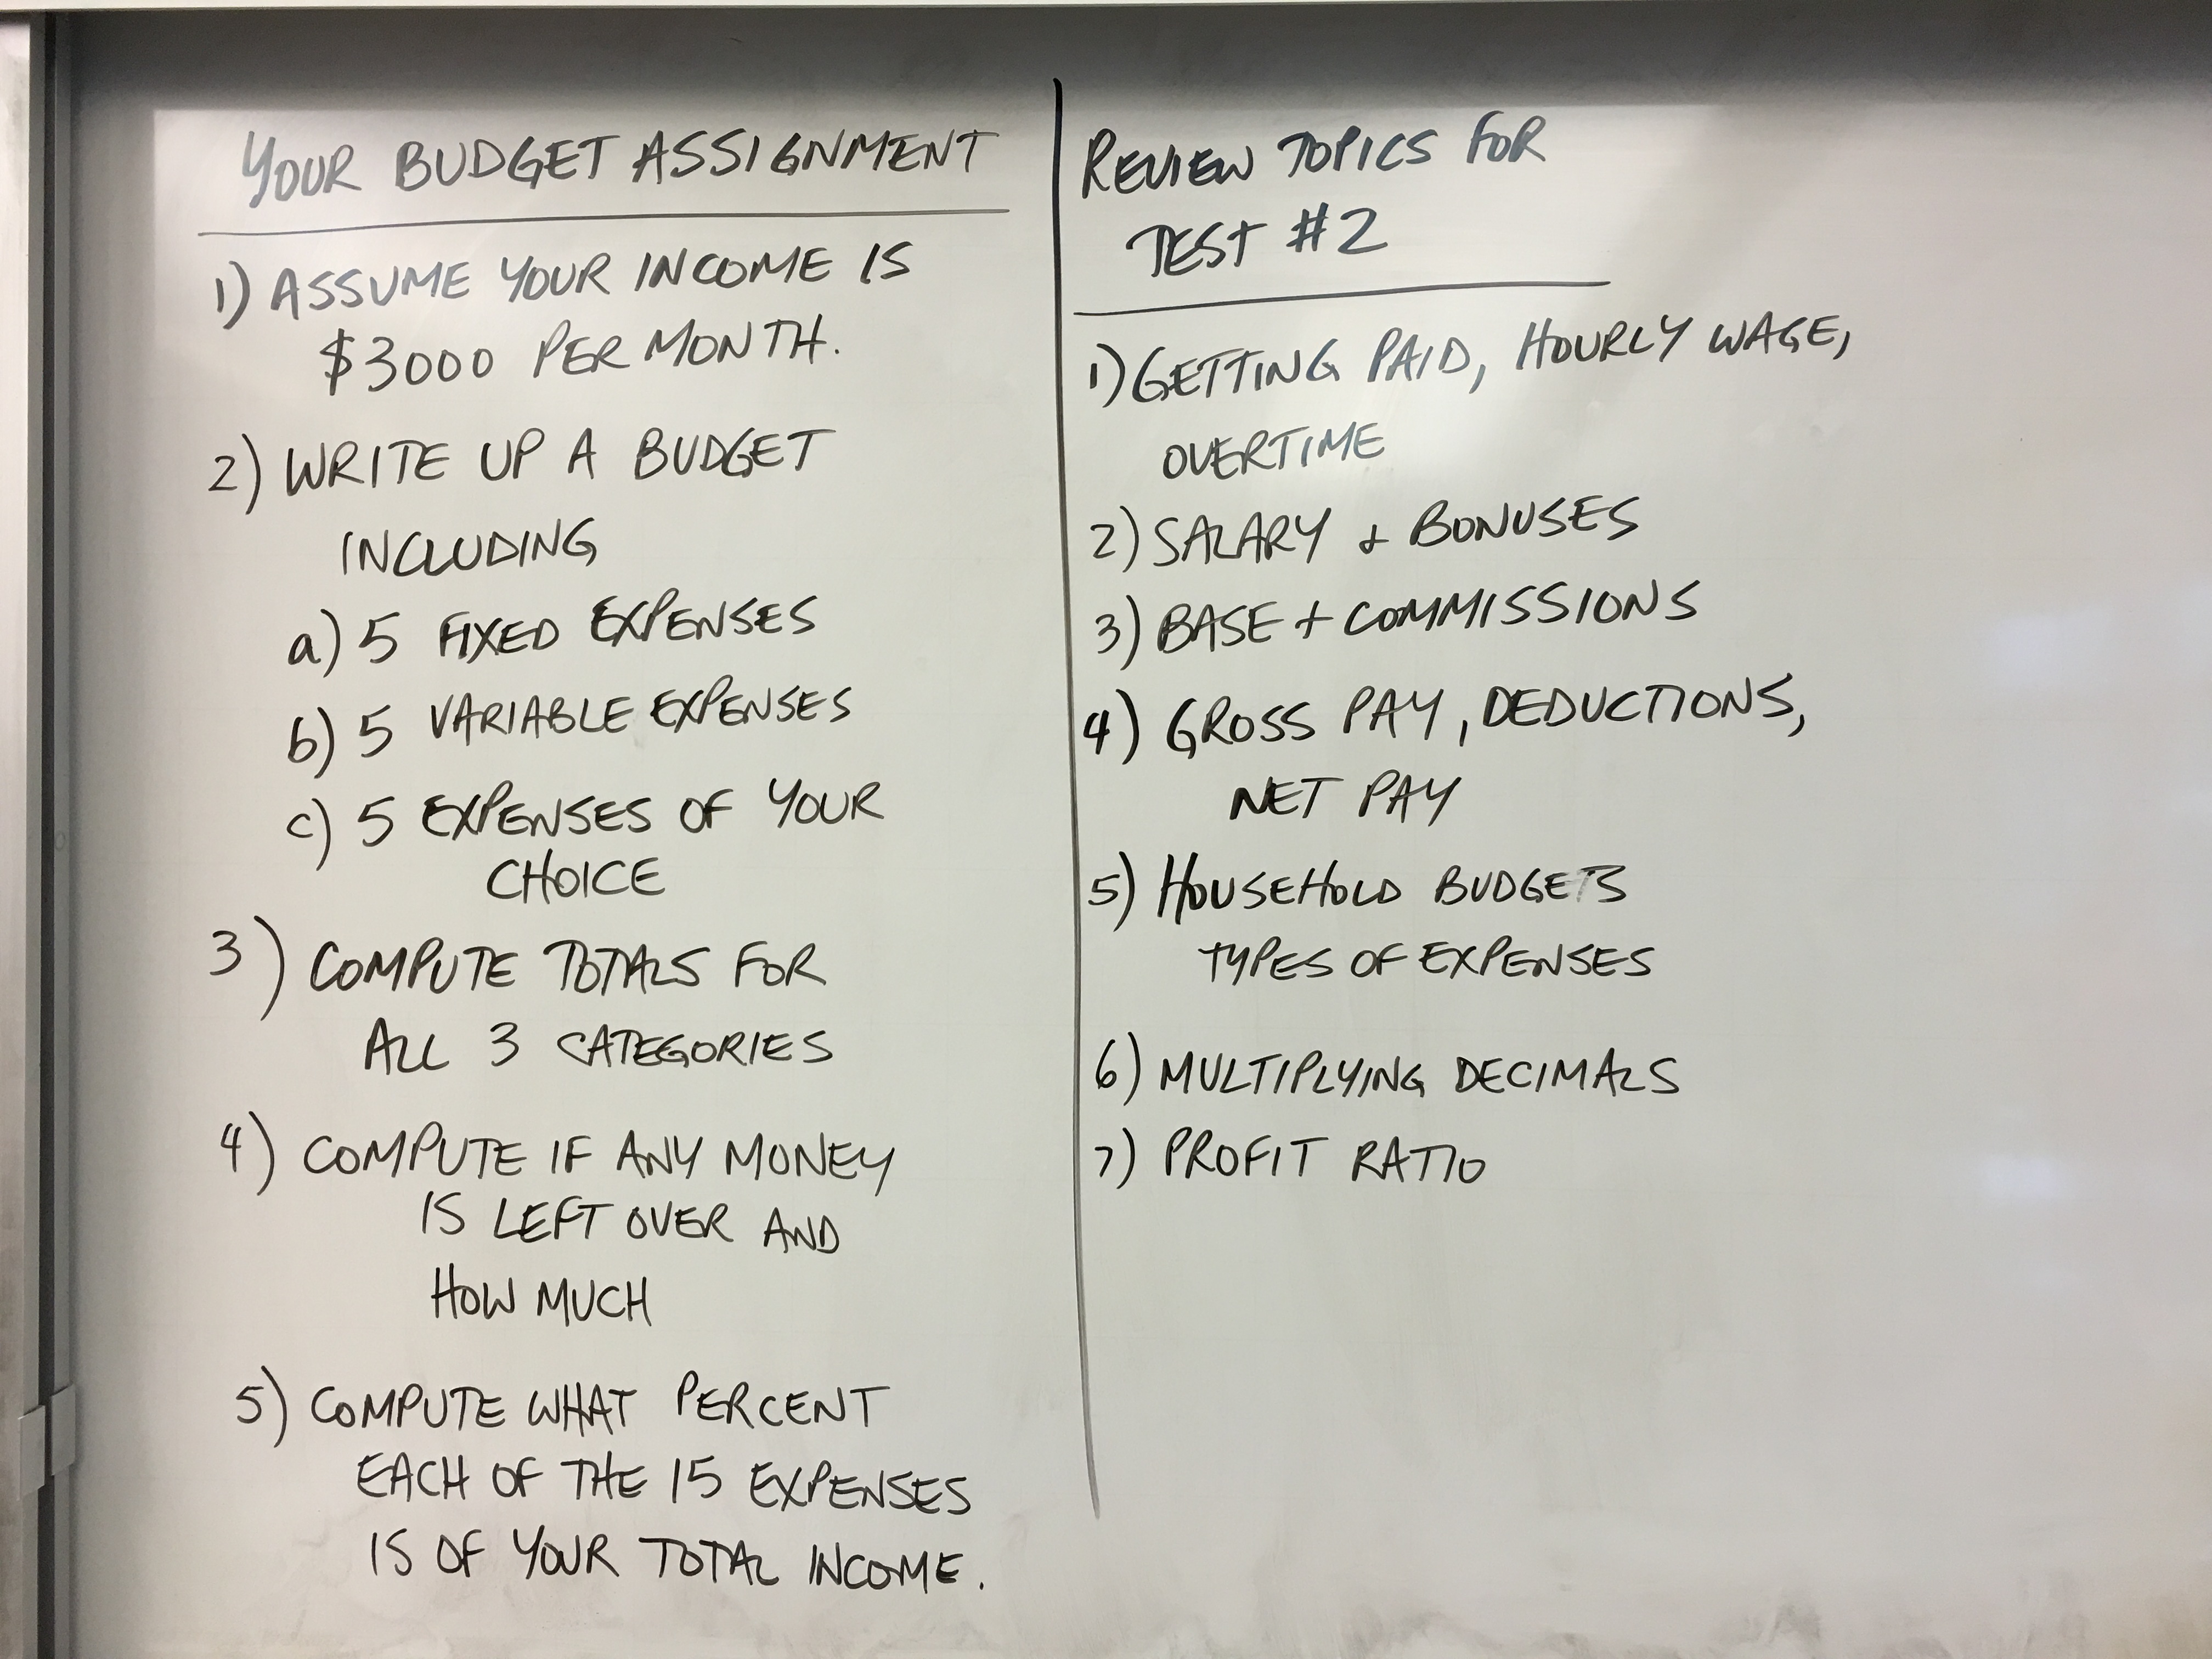 YOUR BUDGET ASSIGNMENT
1) ASSUME YOUR INCOME IS
$3000 PER MONTH.
2) WRITE UP A BUDGET
INCLUDING
a) 5 FIXED EXPENSES
b) 5 VARIABLE EXPENSES
c) 5 EXPENSES OF YOUR
CHOICE
3) COMPUTE TOTALS FOR
ALL 3 CATEGORIES
4) COMPUTE IF ANY MONEY
IS LEFT OVER AND
HOW MUCH
5) COMPUTE WHAT PERCENT
EACH OF THE 15 EXPENSES
IS OF YOUR TOTAL INCOME.
REVIEW TOPICS FOR
TEST #2
1) GETTING PAID, HOURLY WAGE,
OVERTIME
2) SALARY + BONUSES
3) BASE + COMMISSIONS
4) GROSS PAY, DEDUCTIONS,
NET PAY
5) HOUSEHOLD BUDGETS
TYPES OF EXPENSES
6) MULTIPLYING DECIMALS
7) PROFIT RATIO